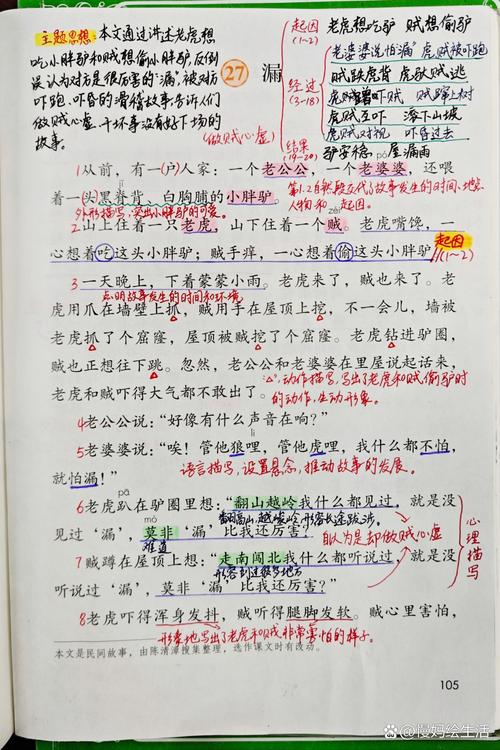 主题思想：本文通过讲述老虎想
吃小胖驴和贼想偷小胖驴,反倒
误认为对方是很厉害的"漏",被对方
吓跑、吓昏的滑稽故事告诉人们
做贼心虚、干坏事没有好下场的
故事。
27 漏
(做贼心虚)
起因
(1-2)
老虎想吃驴 贼想偷驴
经过
(3-18)
老婆婆说怕漏"虎贼被吓跑
贼跌虎背 虎驮贼逃
虎贼吓贼 贼蹿上树
虎贼互吓 滚下山坡
虎贼对视 吓昏过去
结果
(19-20)
驴安稳, 屋漏雨
1从前，有一(户)人家：一个老公公，一个老婆婆，还喂
着一(头)黑脊背、白胸脯的小胖驴。
pó
第1.2自然段交代了故事发生的时间、地点
人物和 起因。
外形描写,突出小胖驴的可爱。
zéi
2山上住着一只老虎，山下住着一个贼。老虎嘴馋，一
心想着吃这头小胖驴；贼手痒，一心想着偷这头小胖驴。
起因
//(1-2)
3一天晚上，下着蒙蒙小雨。老虎来了，贼也来了。老
点明故事发生的时间和环境
虎用爪在墙壁上抓，贼用手在屋顶上挖，不一会儿，墙被
老虎抓了个窟窿，屋顶被贼挖了个窟窿。老虎钻进驴圈，
贼也正想往下跳。忽然，老公公和老婆婆在里屋说起话来，
老虎和贼吓得大气都不敢出了。
动作描写,写出了老虎和贼偷驴时
的动作,生动形象。
4老公公说：“好像有什么声音在响？”
lí
5老婆婆说：“唉！管他狼哩，管他虎哩，我什么都不怕，
就怕漏！”
语言描写,设置悬念,推动故事的发展。
pā
6老虎趴在驴圈里想：“翻山越岭我什么都见过，就是没
翻高山,越峻岭,形容长途跋涉。
mò
见过‘漏’，莫非‘漏’比我还厉害？”
难道
自认为是却做贼心虚
7贼蹲在屋顶上想：“走南闯北我什么都听说过，就是没
形容到过很多地方
听说过‘漏’，莫非‘漏’比我还厉害？”
心理描写
8老虎吓得浑身发抖，贼听得腿脚发软。贼心里害怕，
形象地写出了老虎和贼非常害怕的样子。
本文是民间故事，由陈清漳搜集整理，选作课文时有改动。
105
慢妈绘生活